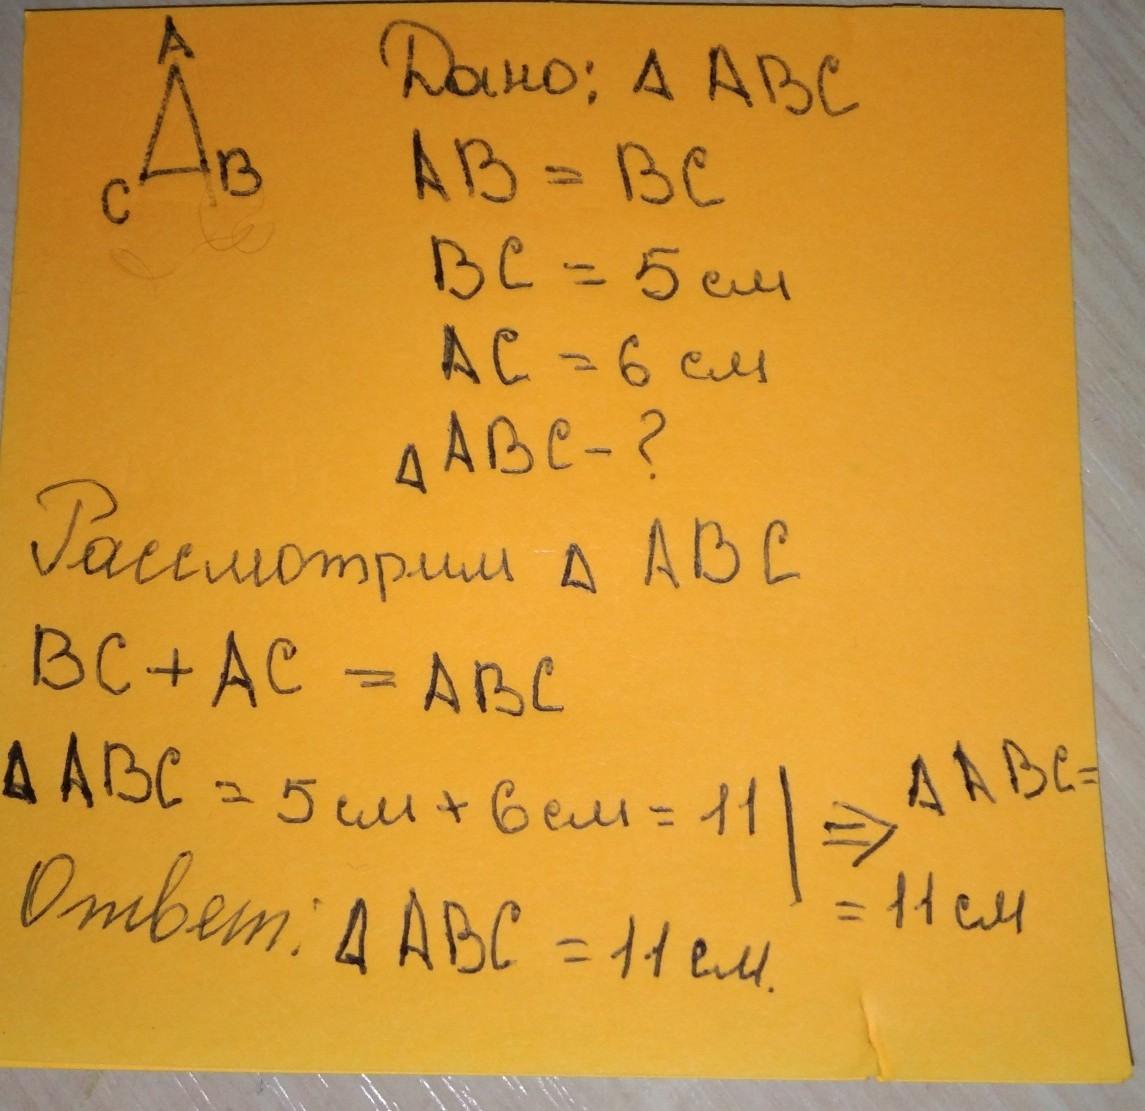 A
C
B
Дано: Δ ABC
AB = BC
BC = 5 см
AC = 6 см
Δ ABC - ?
Рассмотрим Δ ABC
BC + AC = ABC
Δ ABC = 5 см + 6 см = 11 | ⇒ Δ ABC =
= 11 см
Ответ: Δ ABC = 11 см.